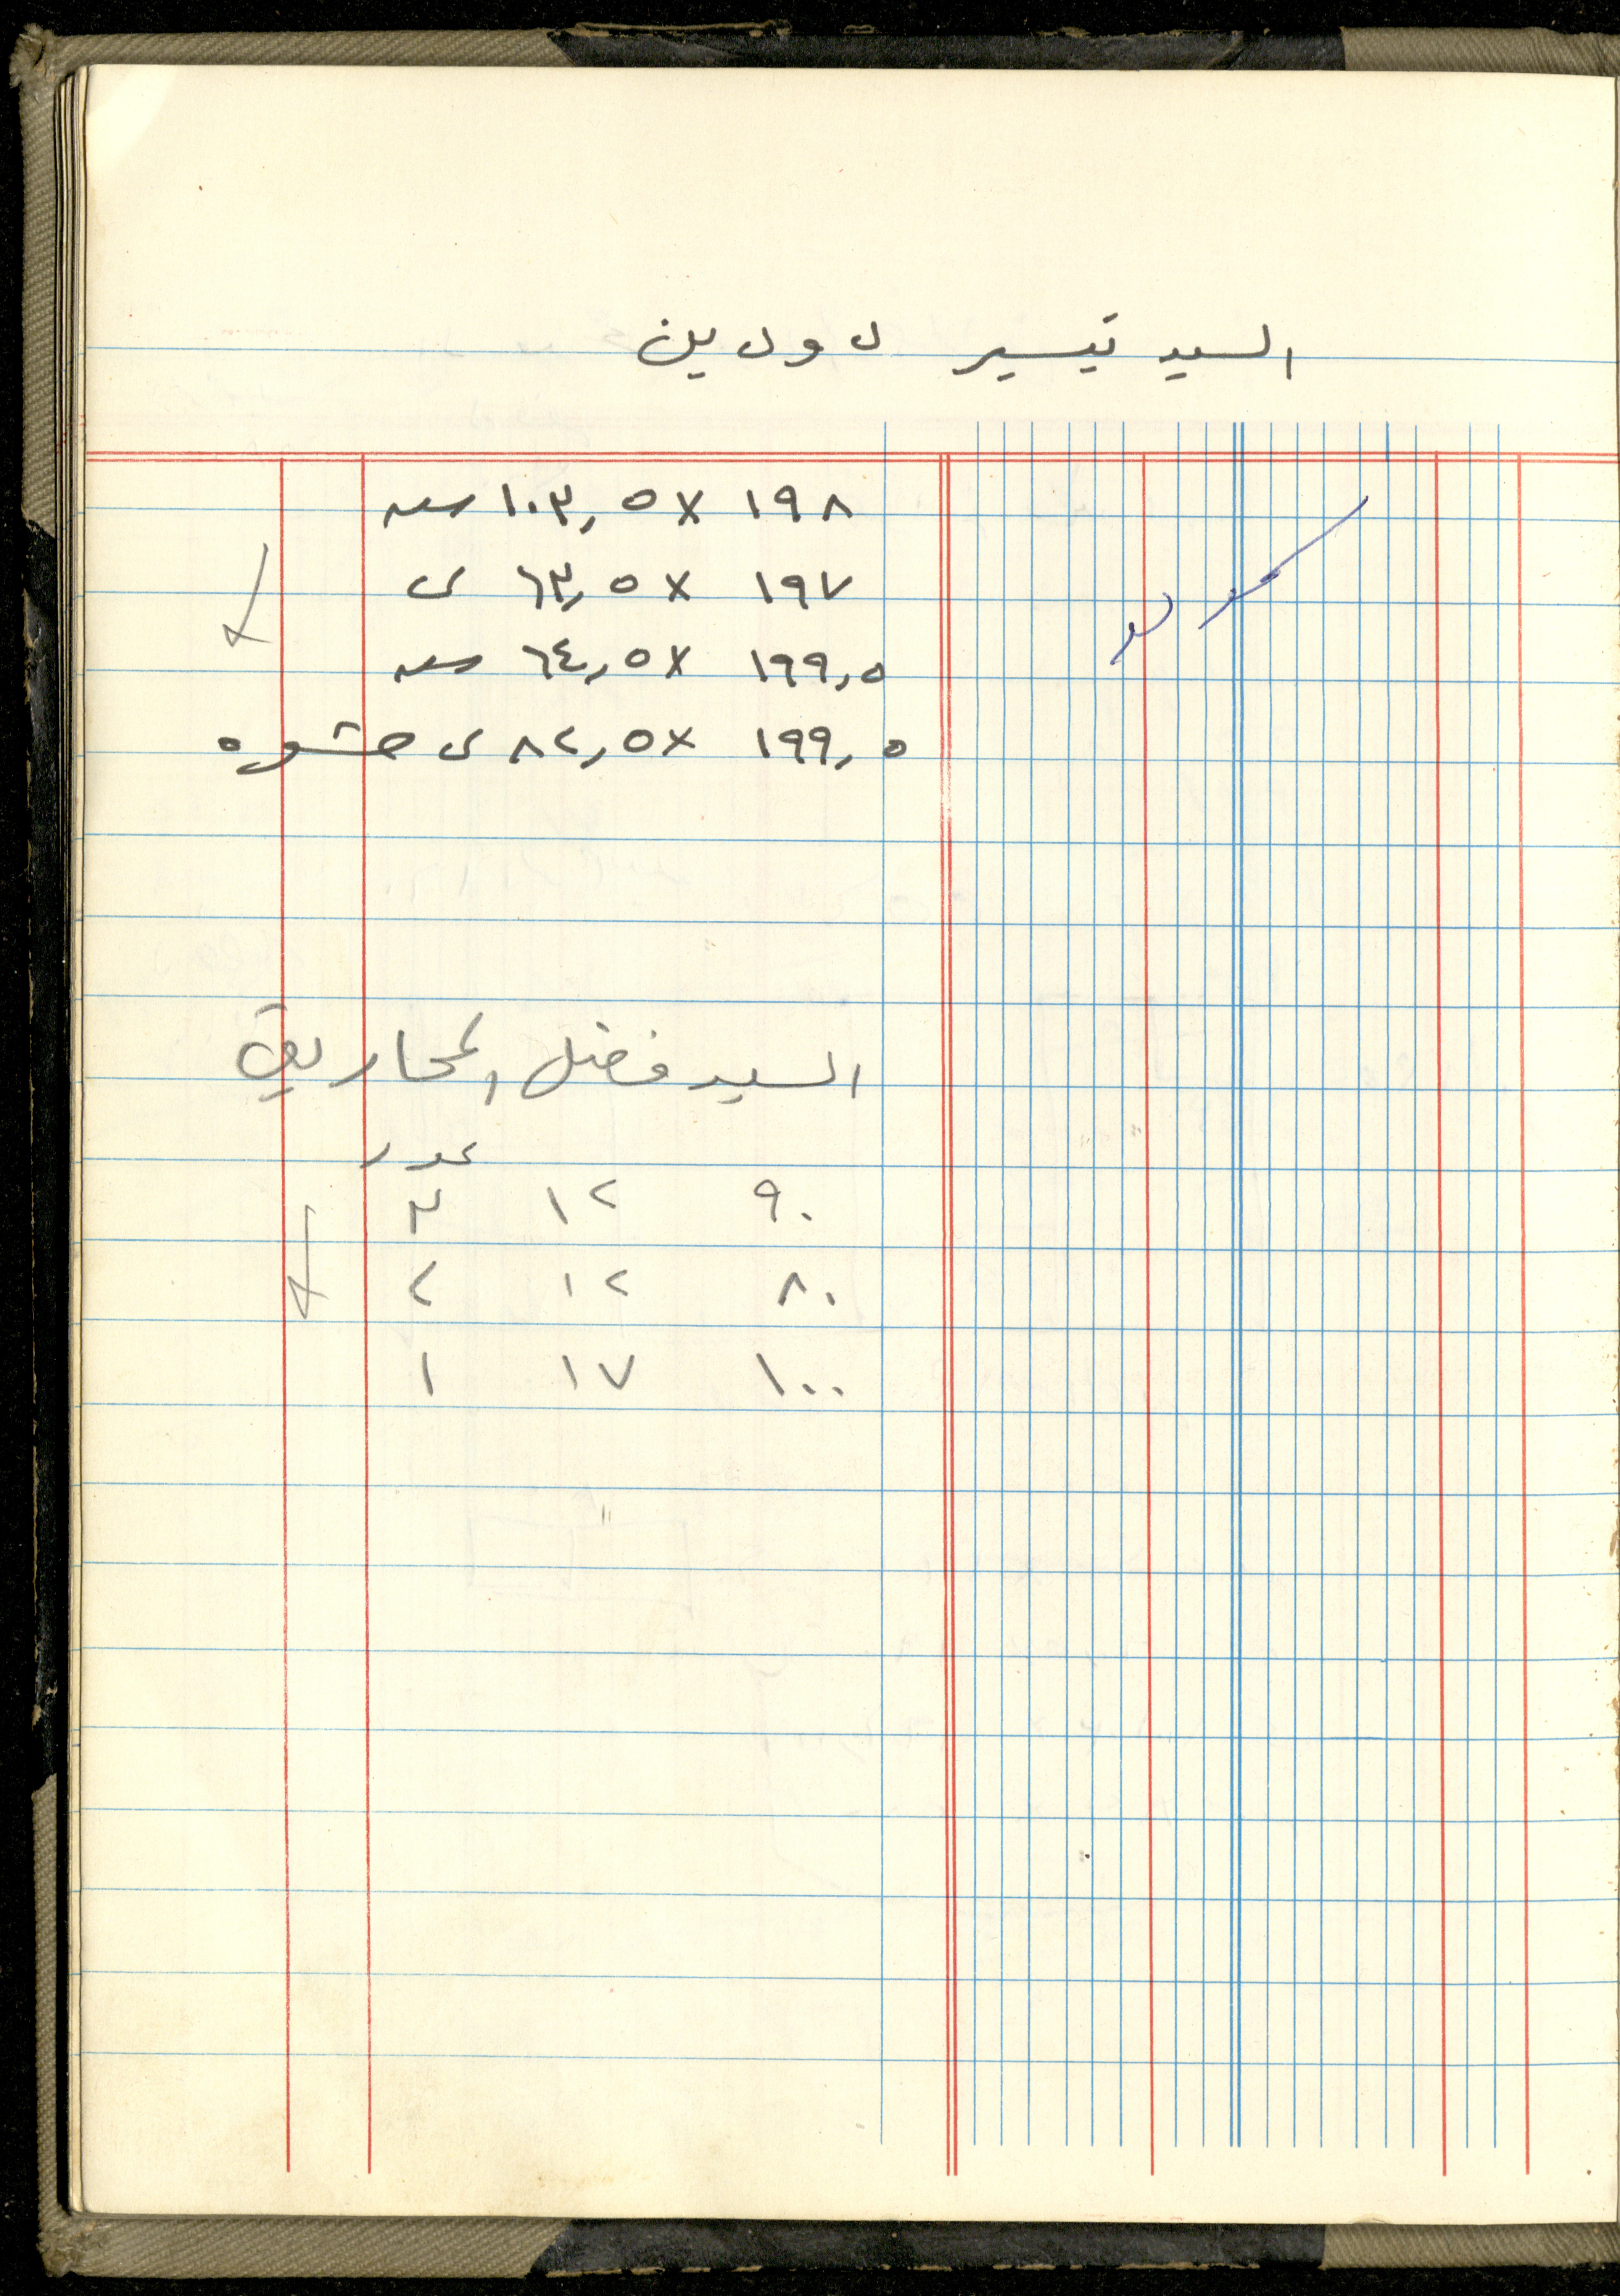 السيد تيسير
١٩٨ × ١٠٣,٥
١٩٧ × ٦٣,٥ ى
١٩٩,٥ × ٦٤,٥
١٩٩,٥ × ٨٢,٥ ى حشوه
السيد فضل المحاريق
عدد
٩٠ ١٢ ٣
٨٠ ١٢ ٢
١٠٠ ١٧ ١